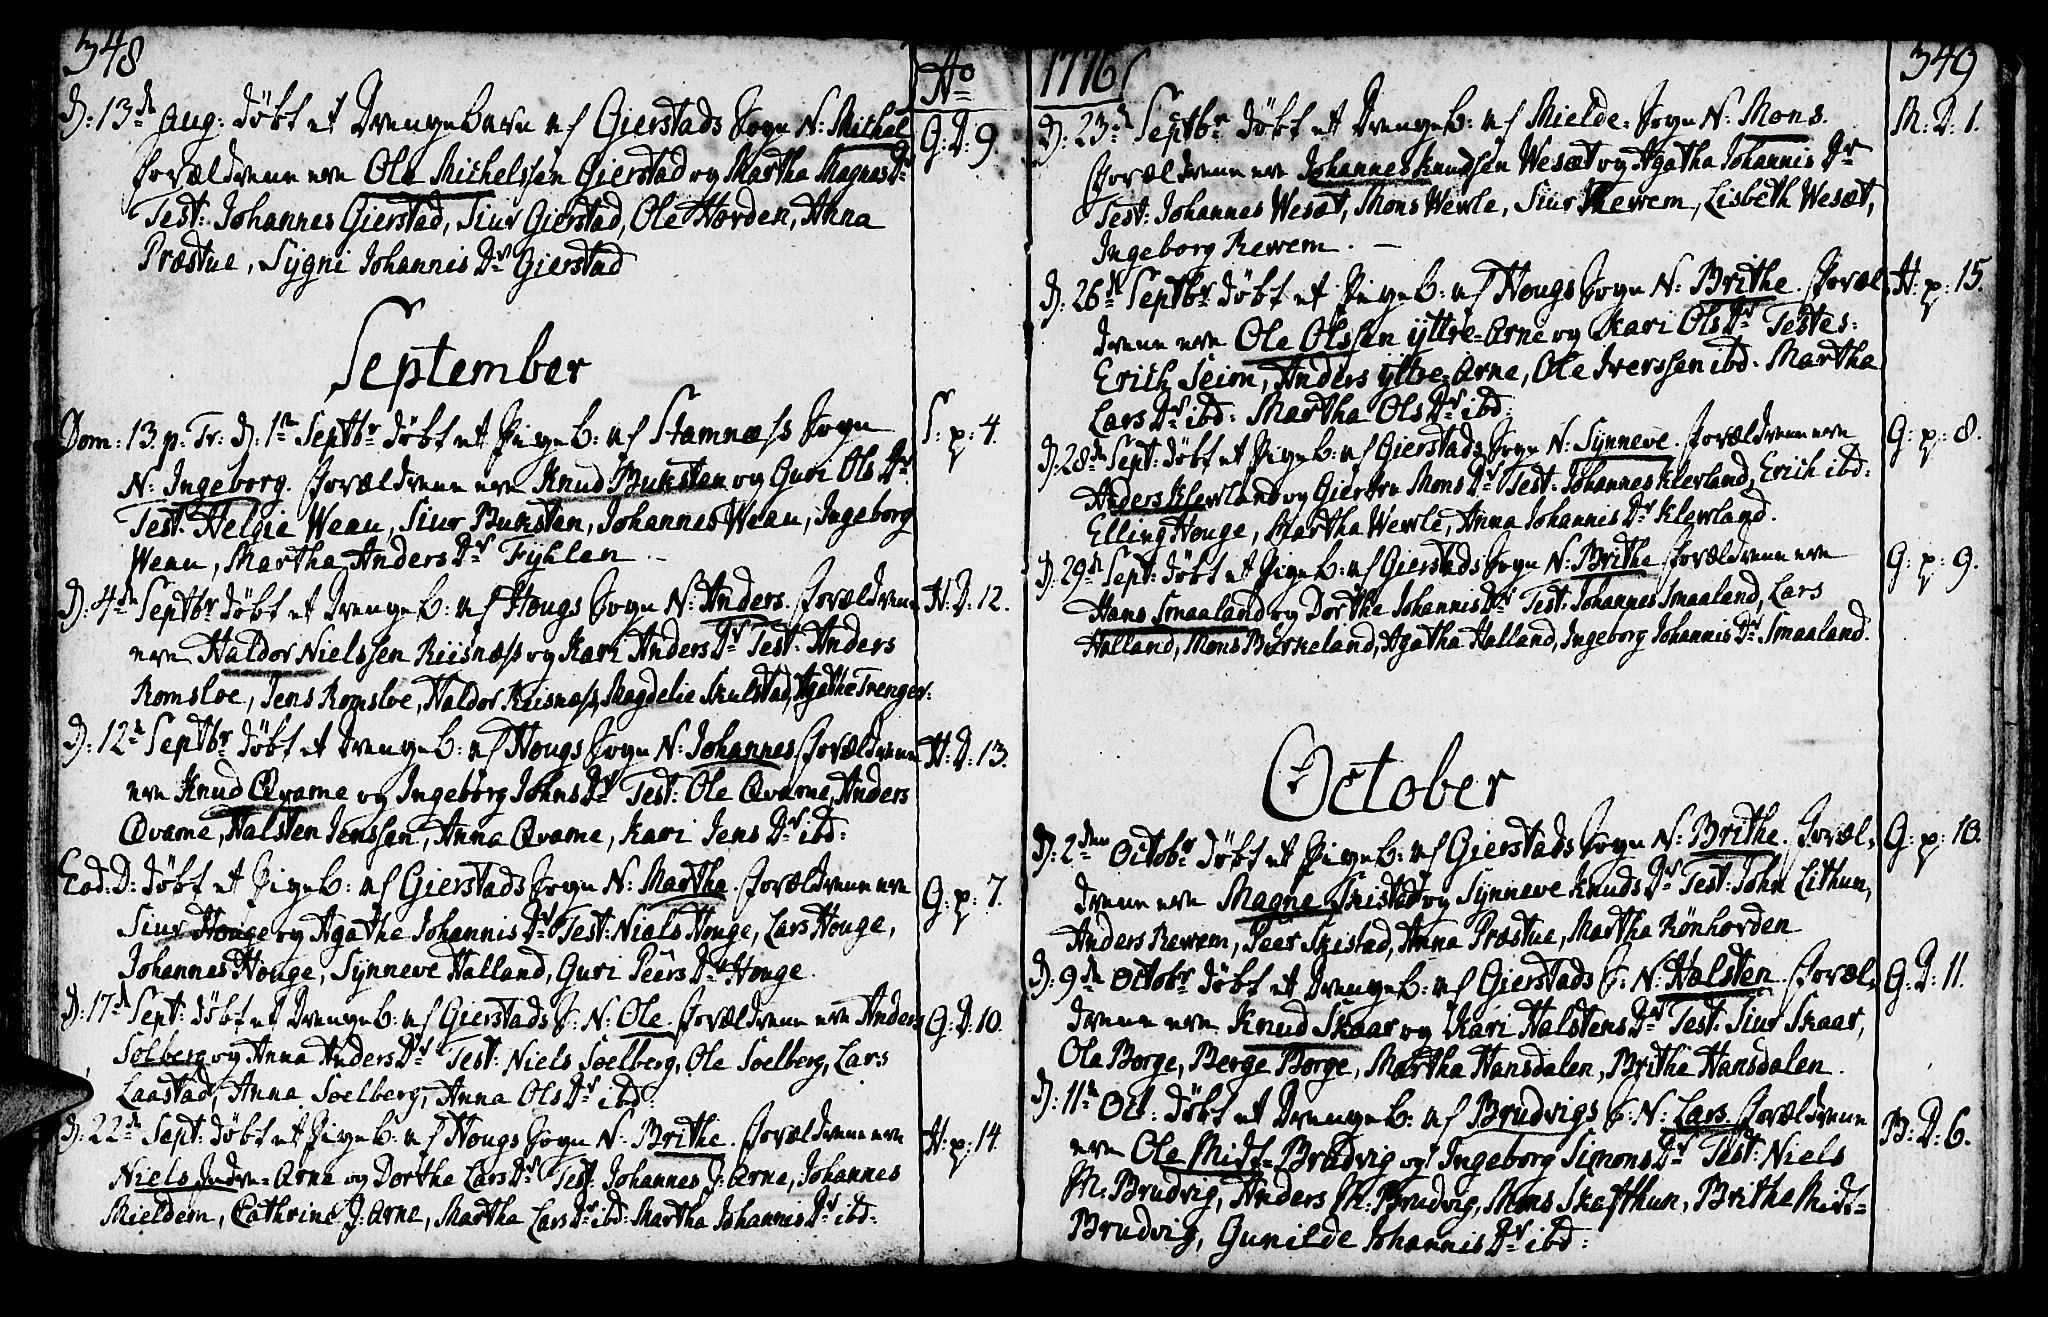 348
No
D: 13de Aug: döbt et Drengebarn af Gierstads Sogn N: Michel
G: D: 9.
Forældrene ere Ole Michelssen Gierstad og Martha Magnas Dr
Test: Johannes Gierstad, Siur Gierstad, Ole Horden, Anna
Præstue, Sygni Johannis Dr Gierstad
September
Dom: 13. p: Tr: D: 1te Septbr döbt et Pigeb: af Stamness Sogn
S: p: 4.
N: Ingeborg. Forældrene ere Knud Buksten og Guri Ols Dr
Test: Helgie Weau, Siur Buksten, Johannes Weau, Ingeborg
Weau, Martha Anders Dr Fyhlen
D: 4de Septbr döbt et Drengeb: af Hougs Sogn N: Anders. Forældrene
H: D: 12.
ere Haldor Nielssen Riisnæss og Kari Anders Dr Test: Anders
Romsloe, Jens Romsloe, Haldor Riisnæss, Magdelie Skulstad, Agathe Trenger:
D: 12te Septbr döbt et Drengeb: af Hougs Sogn N: Johannes. Forældrene
H: D: 13.
ere Knud Qvame og Ingeborg Johns Dr Test: Ole Qvame, Anders
Qvame, Halsten Jenssen, Anna Qvame, Kari Jens Dr ibd:
Eod: D: döbt et Pigeb: af Gierstads Sogn N: Martha. Forældrene ere
G: p: 7.
Siur Houge og Agathe Johannis Dr Test: Niels Houge, Lars Houge,
Johannes Houge, Synneve Halland, Guri Peers Dr Houge.
D: 17de Sept: döbt et Drengeb: af Gierstads S: N: Ole. Forældrene ere Anders
G: D: 10.
Solberg og Anna Anders Dr Test: Niels Soelberg, Ole Soelberg, Lars
Laastad, Anna Soelberg, Anna Ols Dr ibd:
D: 22de Sept: döbt et Pigeb: af Hougs Sogn N: Brithe. Forældrene ere
H: p: 14.
Niels Indre-Arne og Dorthe Lars Dr Test: Johannes J: Arne, Johannes
Mieldem, Cathrine J: Arne, Martha Lars Dr ibd: Martha Johannis Dr ibd:
1776
349
D: 23de Septbr döbt et Drengeb: af Mielde-Sogn N: Mons.
M: D: 1.
Forældrene ere Johannes Knudsen Wesæt og Agatha Johannis Dr
Test: Johannes Wesæt, Mons Wevle, Siur Rewem, Lisbeth Wesæt,
Ingeborg Rewem. —
D: 26de Septbr döbt et Pigeb: af Hougs Sogn N: Brithe. Foræl-
H: p: 15.
drene ere Ole Olssen yttre-Arne og Kari Ols Dr Testes:
Erich Seim, Anders yttre-Arne, Ole Iverssen ibd: Martha
Lars Dr ibd: Martha Ols Dr ibd:
D: 28de Sept: döbt et Pigeb: af Gierstads Sogn N: Synneve. Forældrene ere
G: p: 8.
Anders Klewland og Giertru Mons Dr Test: Johannes Klevland, Erich ibd:
Elling Houge, Martha Wevle, Anna Johannis Dr Klewland.
D: 29de Sept: döbt et Pigeb: af Gierstads Sogn N: Brithe Forældrene ere
G: p: 9.
Hans Smaaland og Dortha Johannis Dr Test: Johannes Smaaland, Lars
Halland, Mons Birkeland, Agatha Halland, Ingeborg Johannis Dr Smaaland.
October
D: 2den Octobr döbt et Pigeb: af Gierstads Sogn N: Brithe. Foræl-
G: p: 10.
drene ere Magne Skistad og Synneve Knuds Dr Test: John Lithun,
Anders Rewem, Peer Skistad, Anna Præstue, Martha Rönhorden
D: 9de Octobr döbt et Drengeb: af Gierstads S: N: Halsten. Foræl-
G: D: 11.
drene ere Knud Skaar og Kari Halstens Dr Test: Siur Skaar,
Ole Borge, Berge Borge, Martha Hansdalen, Brithe Hansdalen.
D: 11te Oct: döbt et Drengeb: af Brudvigs S: N: Lars. Forældrene
B: D: 6.
ere Ole Midt-Brudvig og Ingeborg Simons Dr Test: Niels
M: Brudvig, Anders M: Brudvig, Mons Skafthun, Brithe Midt-
Brudvig, Gunilde Johannis Dr ibd: